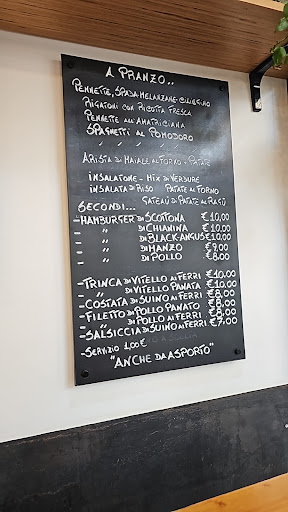 A PRANZO..
PENNETTE, SPADA MELANZANE CILIEGINO
RIGATONI CON RICOTTA FRESCA
PENNETTE ALL'AMATRICIANA
SPAGHETTI AL POMODORO
" " " "
ARISTA DI MAIALE AL FORNO + PATATE
INSALATONE - MIX DI VERDURE
INSALATA DI RISO PATATE AL FORNO
SECONDI... GATEAU DI PATATE AL RAGÙ
- HAMBURGER DI SCOTTONA €10,00
- " DI CHIANINA €10,00
- " DI BLACK-ANGUS €10,00
- " DI MANZO €9,00
- " DI POLLO €8,00
- TRINCA DI VITELLO AI FERRI €10,00
- " DI VITELLO PANATA €10,00
- COSTATA DI SUINO AI FERRI €8,00
- FILETTO DI POLLO PANATO €8,00
- " DI POLLO AI FERRI €8,00
- SALSICCIA DI SUINO AI FERRI €7,00
- SERVIZIO 1,00€
"ANCHE DA ASPORTO"